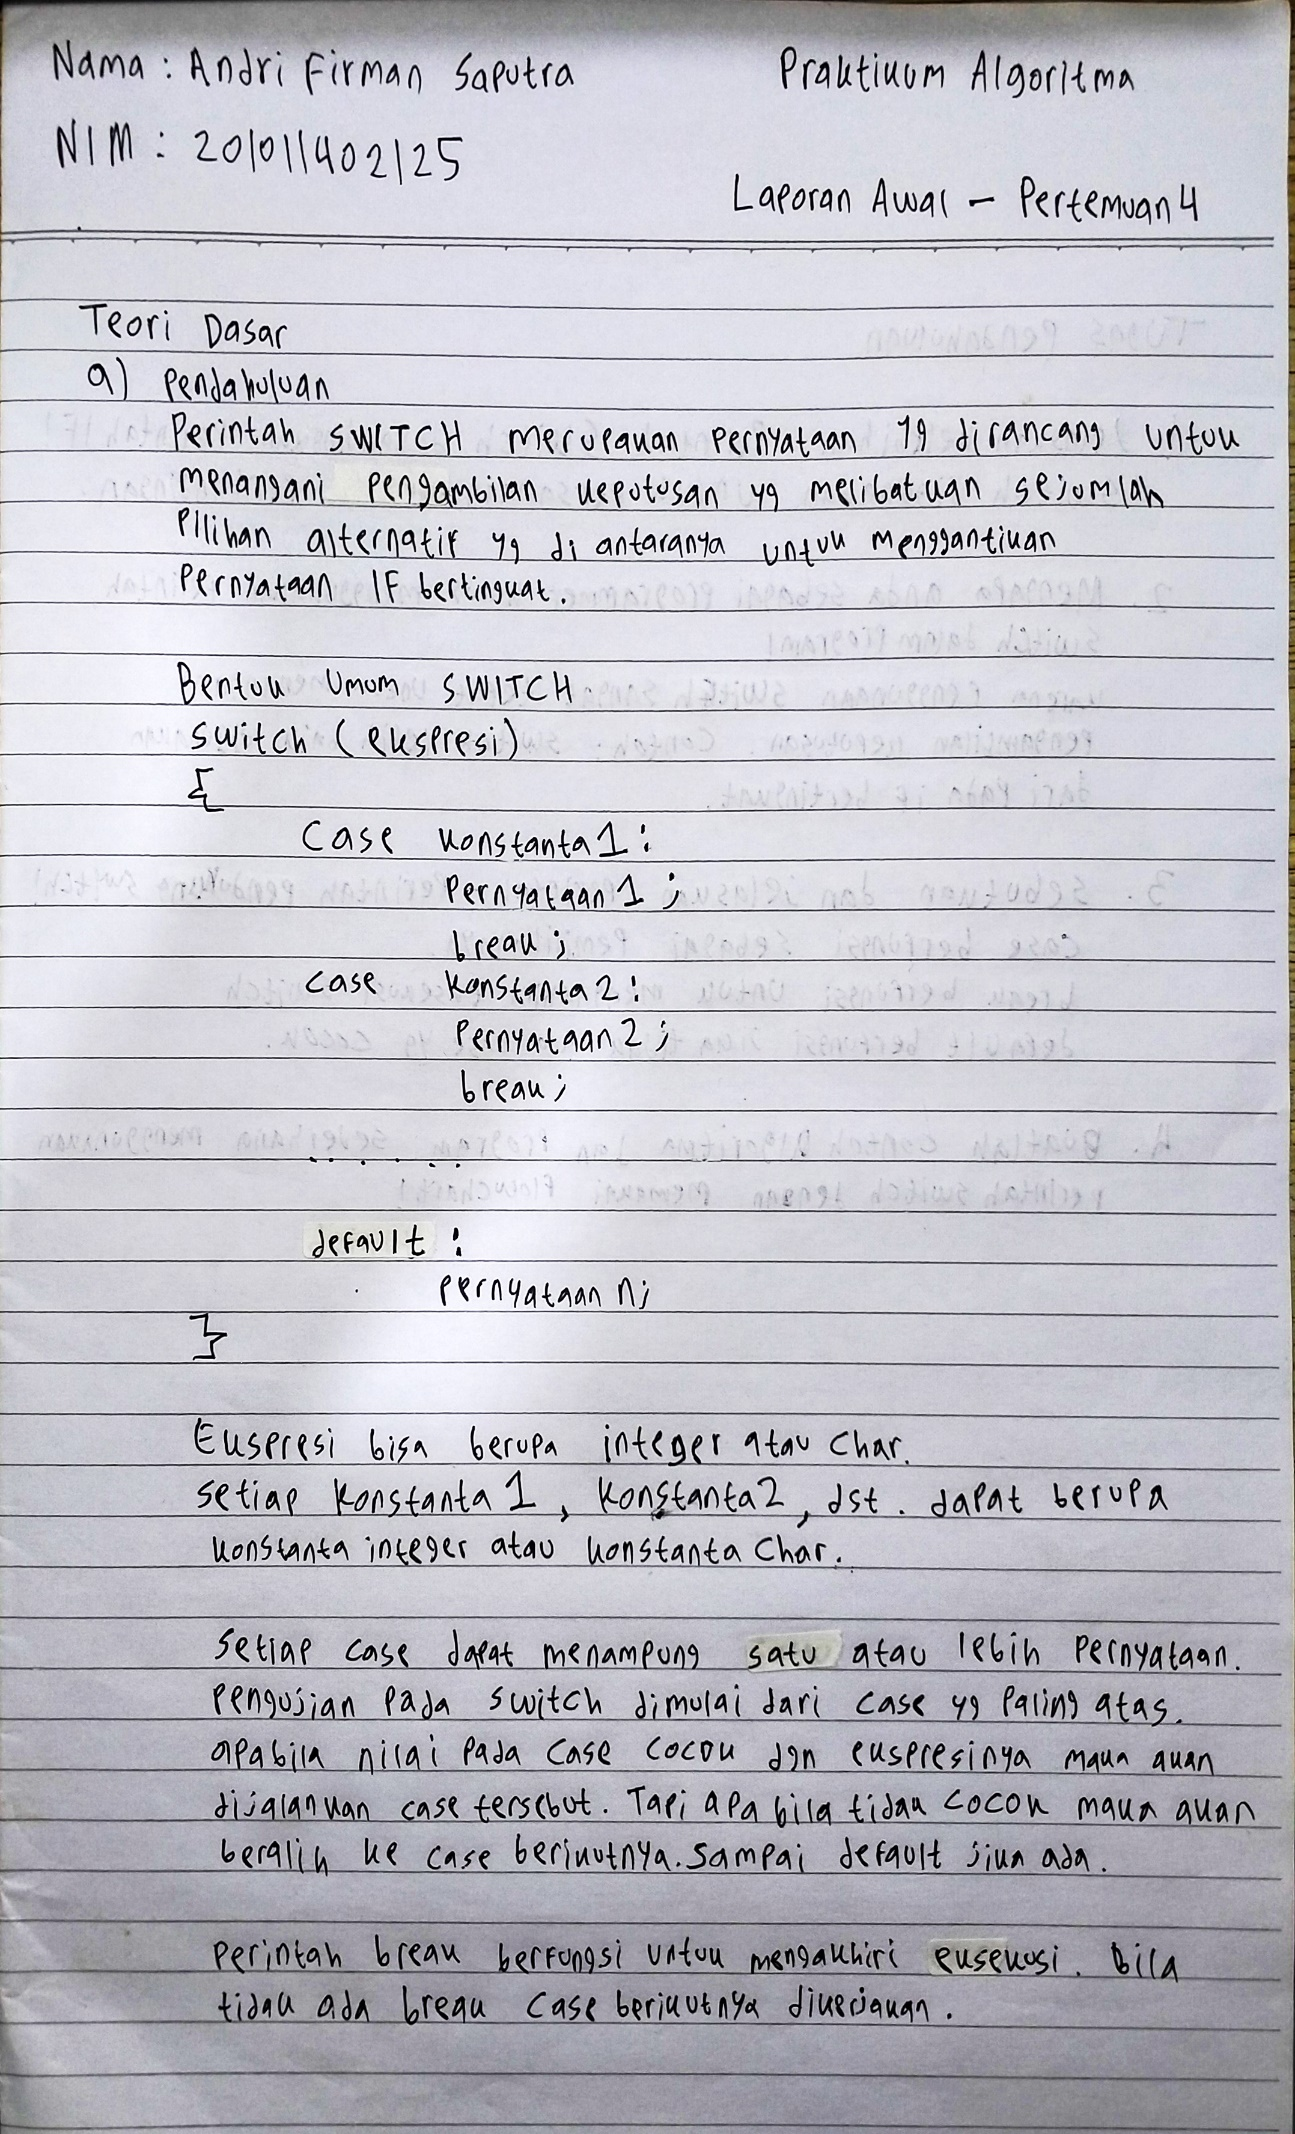 Nama : Andri Firman Saputra
Praktikum Algoritma
NIM : 201011402125
Laporan Awal - Pertemuan 4
Teori Dasar
a) Pendahuluan
Perintah SWITCH merupakan Pernyataan yg dirancang untuk
menangani pengambilan keputusan yg melibatkan sejumlah
Pilihan alternatif yg di antaranya untuk menggantikan
Pernyataan IF bertingkat.
Bentuk Umum SWITCH
switch (ekspresi)
{
Case konstanta 1 :
Pernyataan 1 ;
break ;
case konstanta 2 :
Pernyataan 2 ;
break ;
. . . . . .
default :
pernyataan n ;
}
Ekspresi bisa berupa integer atau Char.
setiap konstanta 1 , konstanta 2 , dst . dapat berupa
konstanta integer atau konstanta Char.
Setiap case dapat menampung satu atau lebih pernyataan.
pengujian pada switch dimulai dari case yg paling atas.
apabila nilai pada case cocok dgn ekspresinya maka akan
dijalankan case tersebut. Tapi apa bila tidak cocok maka akan
beralih ke case berikutnya. Sampai default jika ada.
perintah break berfungsi untuk mengakhiri eksekusi. Bila
tidak ada break case berikutnya dikerjakan.